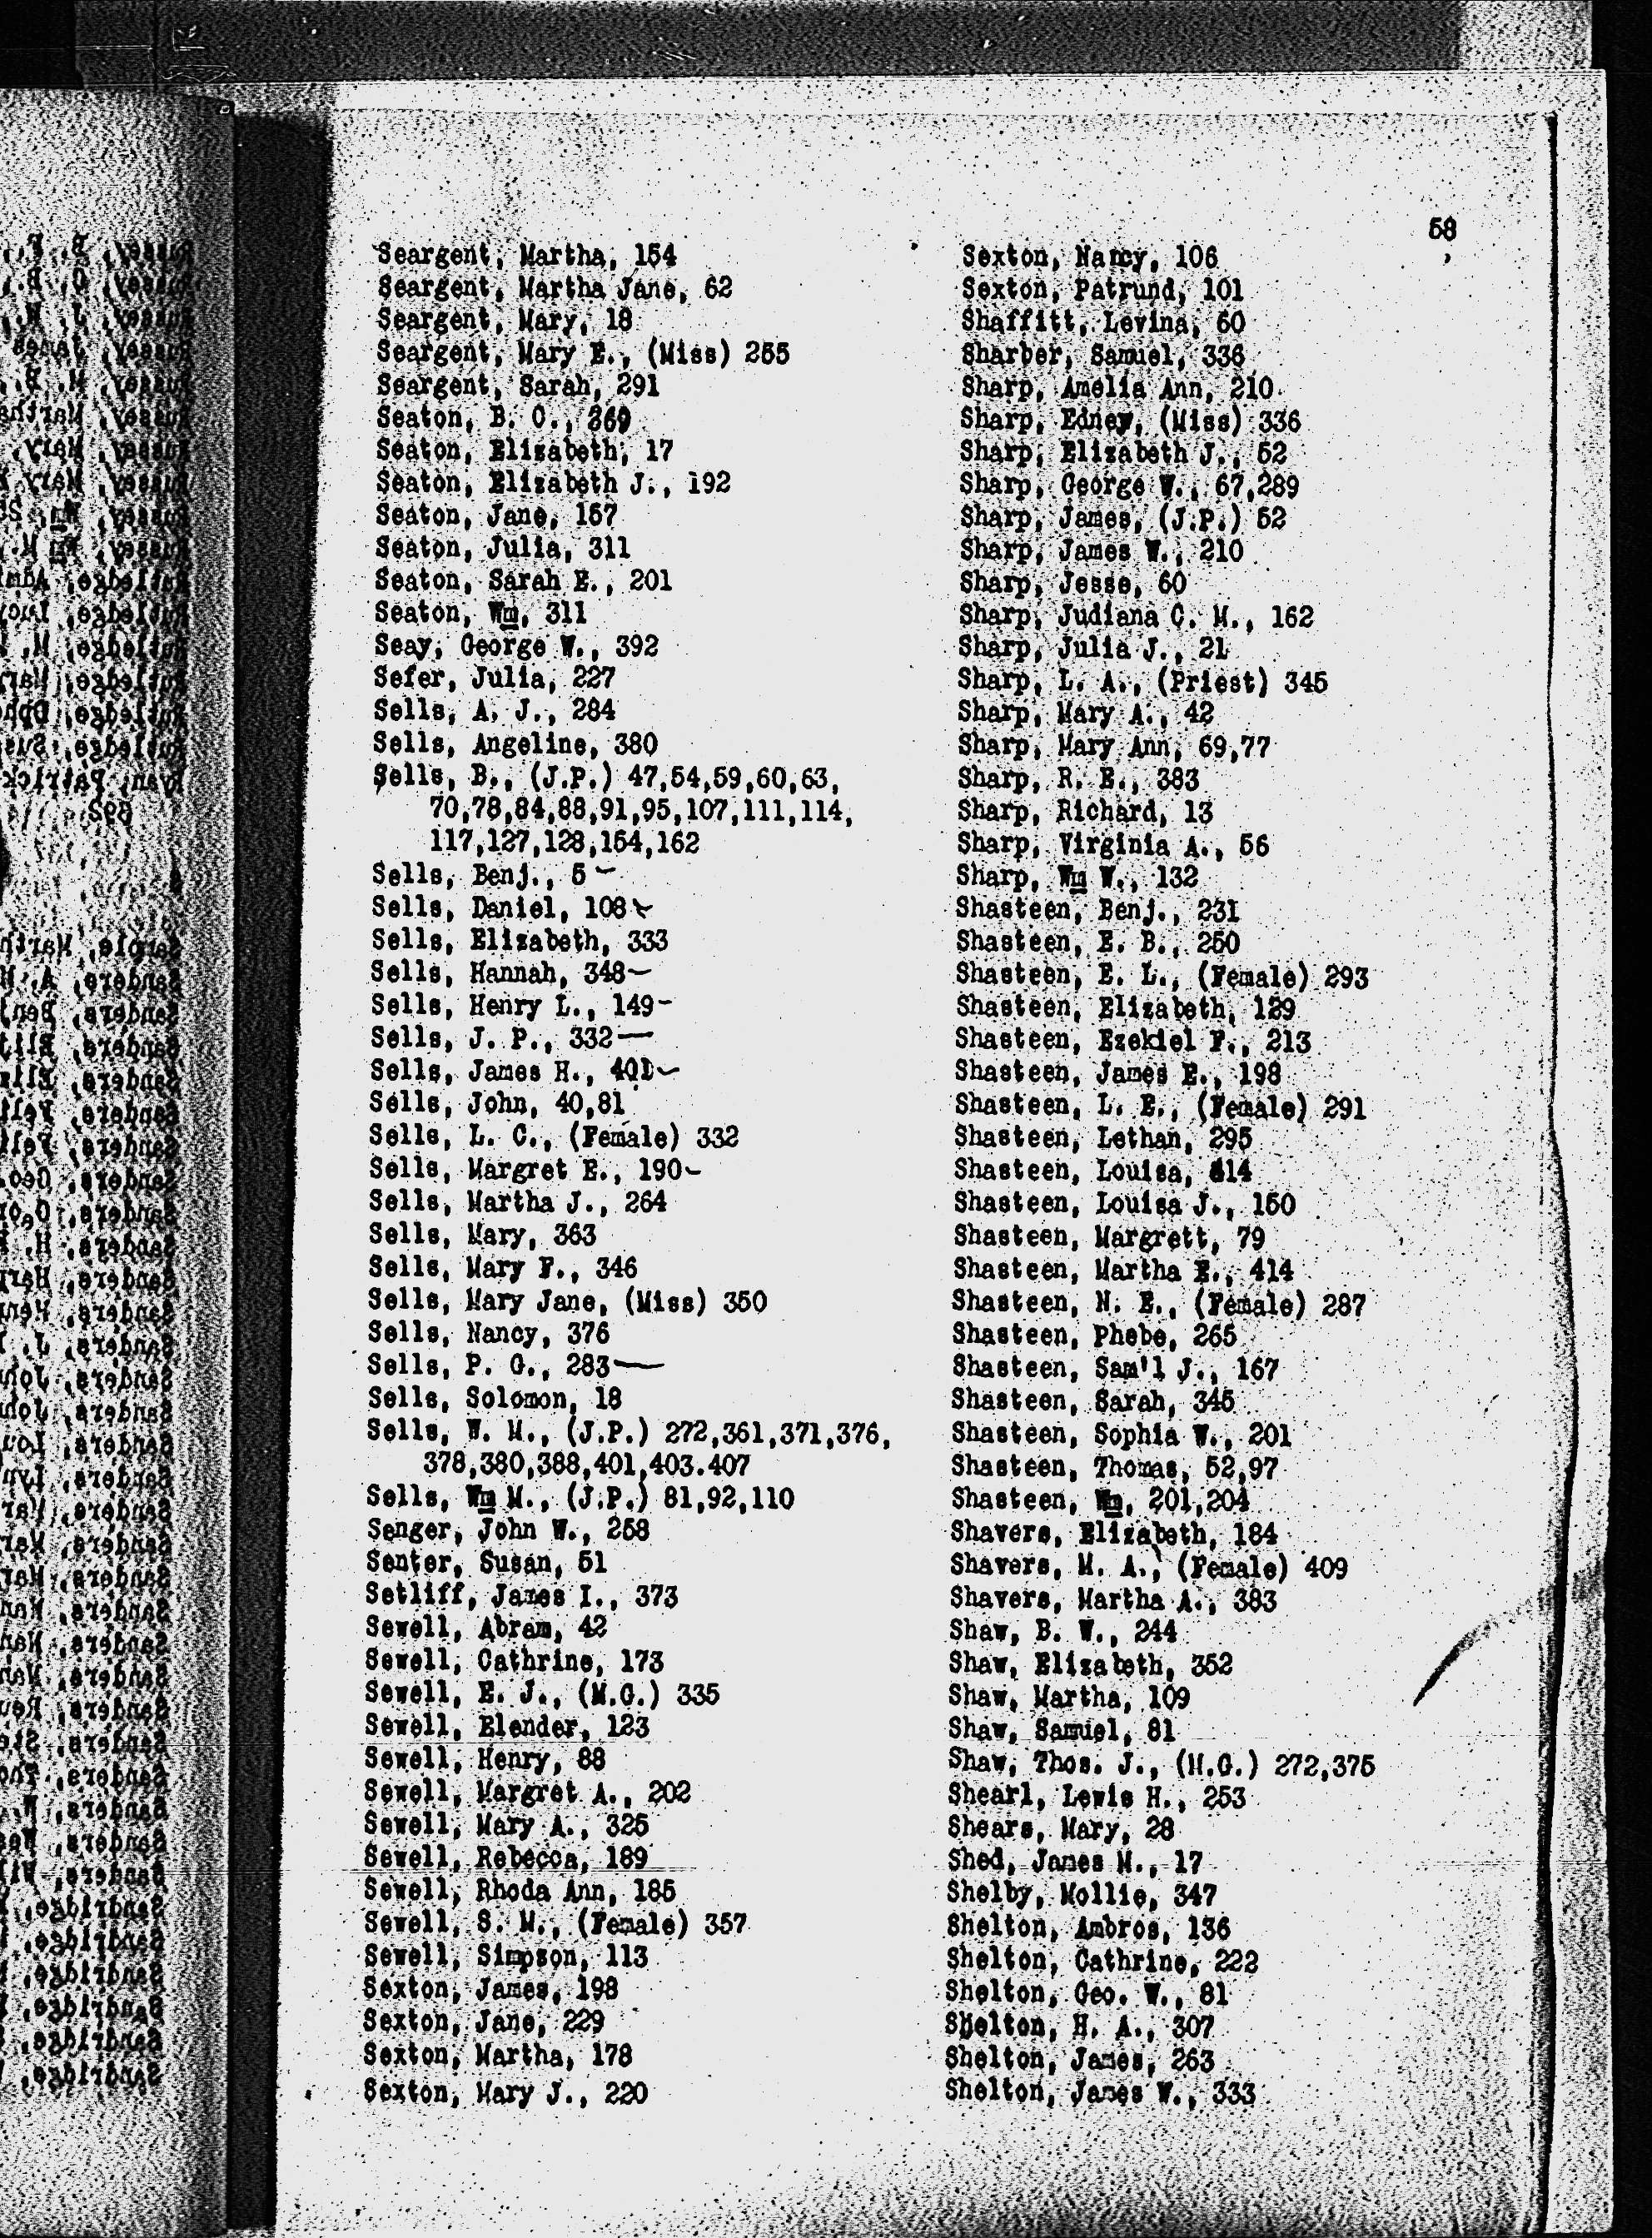 58
Seargent, Martha, 154
Seargent, Martha Jane, 62
Seargent, Mary, 18
Seargent, Mary E., (Miss) 255
Seargent, Sarah, 291
Seaton, B. O., 269
Seaton, Elizabeth, 17
Seaton, Elizabeth J., 192
Seaton, Jane, 157
Seaton, Julia, 311
Seaton, Sarah E., 201
Seaton, Wm, 311
Seay, George W., 392
Sefer, Julia, 227
Sells, A. J., 284
Sells, Angeline, 380
Sells, B., (J.P.) 47,54,59,60,63,
70,78,84,88,91,95,107,111,114,
117,127,128,154,162
Sells, Benj., 5
Sells, Daniel, 108
Sells, Elizabeth, 333
Sells, Hannah, 348
Sells, Henry L., 149
Sells, J. P., 332
Sells, James H., 401
Sells, John, 40,81
Sells, L. C., (Female) 332
Sells, Margret E., 190
Sells, Martha J., 264
Sells, Mary, 363
Sells, Mary F., 346
Sells, Mary Jane, (Miss) 350
Sells, Nancy, 376
Sells, P. G., 283
Sells, Solomon, 18
Sells, W. M., (J.P.) 272,361,371,376,
378,380,388,401,403.407
Sells, Wm M., (J.P.) 81,92,110
Senger, John W., 258
Senter, Susan, 51
Setliff, James I., 373
Sewell, Abram, 42
Sewell, Cathrine, 173
Sewell, E. J., (M.G.) 335
Sewell, Elender, 123
Sewell, Henry, 88
Sewell, Margret A., 202
Sewell, Mary A., 325
Sewell, Rebecca, 189
Sewell, Rhoda Ann, 185
Sewell, S. M., (Female) 357
Sewell, Simpson, 113
Sexton, James, 198
Sexton, Jane, 229
Sexton, Martha, 178
Sexton, Mary J., 220
Sexton, Nancy, 106
Sexton, Patrund, 101
Shaffitt, Levina, 60
Sharber, Samuel, 336
Sharp, Amelia Ann, 210
Sharp, Edney, (Miss) 336
Sharp, Elizabeth J., 52
Sharp, George W., 67,289
Sharp, James, (J.P.) 52
Sharp, James W., 210
Sharp, Jesse, 60
Sharp, Judiana C. M., 162
Sharp, Julia J., 21
Sharp, L. A., (Priest) 345
Sharp, Mary A., 42
Sharp, Mary Ann, 69,77
Sharp, R. E., 383
Sharp, Richard, 13
Sharp, Virginia A., 56
Sharp, Wm W., 132
Shasteen, Benj., 231
Shasteen, E. B., 250
Shasteen, E. L., (Female) 293
Shasteen, Elizabeth, 129
Shasteen, Ezekiel F., 213
Shasteen, James E., 198
Shasteen, L. E., (Female) 291
Shasteen, Lethan, 295
Shasteen, Louisa, 414
Shasteen, Louisa J., 150
Shasteen, Margrett, 79
Shasteen, Martha E., 414
Shasteen, N. E., (Female) 287
Shasteen, Phebe, 265
Shasteen, Sam'l J., 167
Shasteen, Sarah, 345
Shasteen, Sophia W., 201
Shasteen, Thomas, 52,97
Shasteen, Wm, 201,204
Shavers, Elizabeth, 184
Shavers, M. A., (Female) 409
Shavers, Martha A., 383
Shaw, B. W., 244
Shaw, Elizabeth, 352
Shaw, Martha, 109
Shaw, Samuel, 81
Shaw, Thos. J., (M.G.) 272,375
Shearl, Lewis H., 253
Shears, Mary, 28
Shed, James M., 17
Shelby, Mollie, 347
Shelton, Ambros, 136
Shelton, Cathrine, 222
Shelton, Geo. W., 81
Shelton, H. A., 307
Shelton, James, 263
Shelton, James W., 333